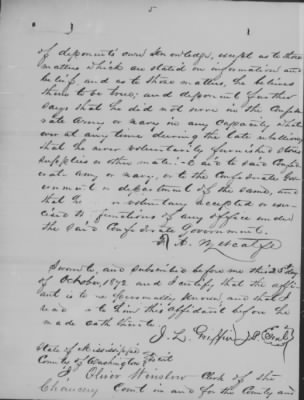 5
of deponents own knowledge, except as to those
matters which are stated on information and
belief, and as to those matters, he believes
them to be true; and deponent further
says that he did not serve in the Confede-
rate Army or navy in any capacity what-
ever at any time during the late rebellion;
that he never voluntarily furnished stores
supplies or other material aid to said Confed-
erate Army or navy, or to the Confederate Gov-
ernment or department of the same, and
that he voluntary accepted or exer-
cised functions of any office under
the said Confederate Government.
A. Metcalfe
Sworn to, and subscribed before me this 25 day
of October, 1872 and I certify that the affi-
ant is to me personally known, and that I
read to him this affidavit before he
made oath thereto
J. L. Griffin
State of Mississippi
County of Washington
I Oliver Winslow Clerk of the
Chancery Court in and for the County and